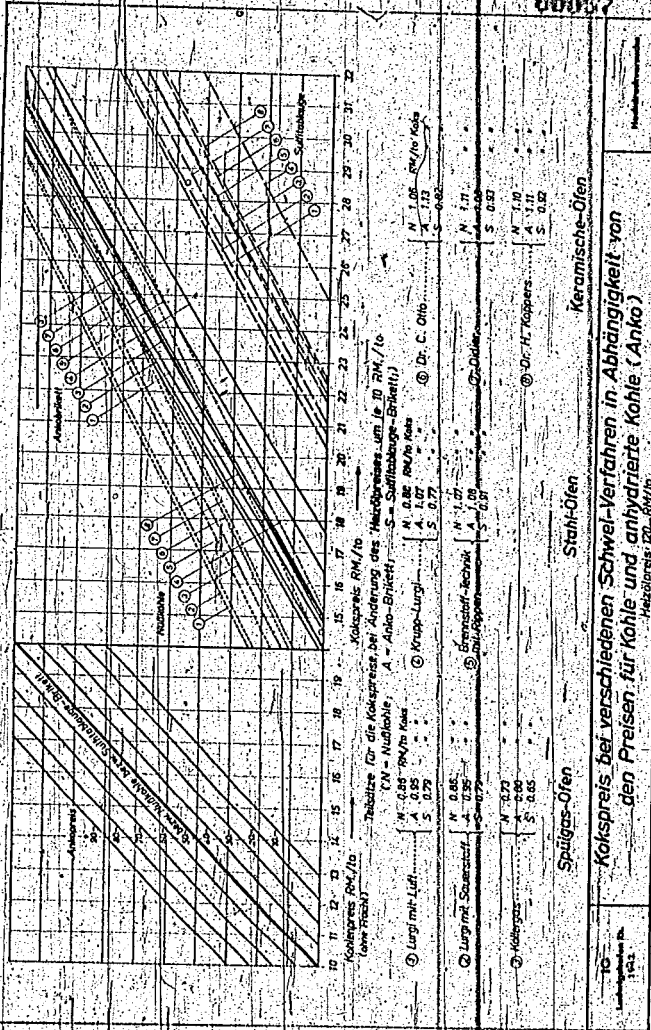 00057
Ankopreis
90
80
70
60
50
40
30
Nußkohle bezw. Sulfitablauge-Brikett
10 11 12 13 14 15 16 17 18 19
Kohlenpreis RM./to
(ohne Fracht)
Nußkohle
① ② ③ ④ ⑤ ⑥ ⑦ ⑧
Ankobrikett
① ② ③ ④ ⑤ ⑥ ⑦ ⑧
Sulfitablauge
① ② ③ ④ ⑤ ⑥ ⑦ ⑧
15 16 17 18 19 20 21 22 23 24 25 26 27 28 29 30 31 32
Kokspreis RM./to
Teilsätze für die Kokspreise bei Änderung des Heizölpreises um je 10 RM./to
(N = Nußkohle, A = Anko-Brikett, S = Sulfitablauge-Brikett)
① Lurgi mit Luft
N 0.86 RM/to Koks
A 0.95 " "
S 0.79 " "
② Lurgi mit Sauerstoff
N 0.86 " "
A 0.95 " "
S 0.79 " "
③ Kollergas
N 0.73 " "
A 0.80 " "
S 0.65 " "
Spülgas-Öfen
④ Krupp-Lurgi
N 0.82 RM/to Koks
A 1.07 " "
S 0.77 " "
⑤ Brennstoff-Technik
N 1.07 " "
A 1.08 " "
S 0.91 " "
Stahl-Öfen
⑥ Dr. C. Otto
N 1.06 RM/to Koks
A 1.13 " "
S 0.82 " "
⑦ Didier
N 1.11 " "
S 0.93 " "
⑧ Dr. H. Koppers
N 1.10 " "
A 1.11 " "
S 0.92 " "
Keramische-Öfen
Kokspreis bei verschiedenen Schwel-Verfahren in Abhängigkeit von
den Preisen für Kohle und anhydrierte Kohle (Anko)
Heizölpreis: 120.- RM/to